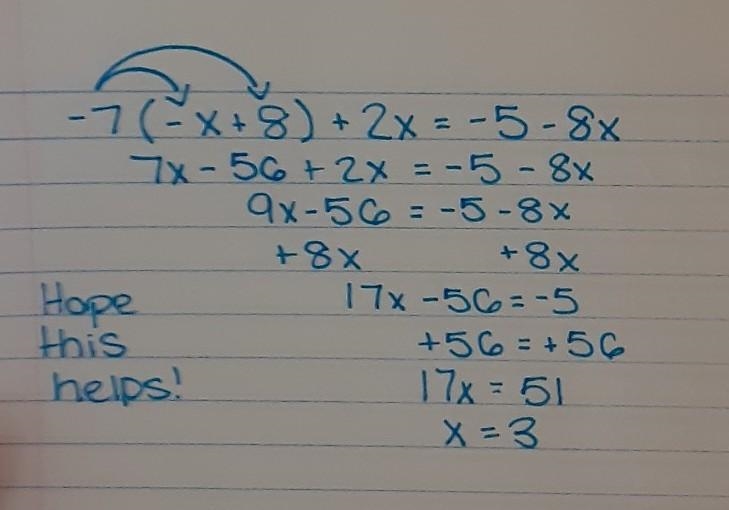 -7(-x+8) + 2x = -5 - 8x
7x - 56 + 2x = -5 - 8x
9x - 56 = -5 - 8x
+8x +8x
17x - 56 = -5
+56 = +56
17x = 51
x = 3
Hope
this
helps!